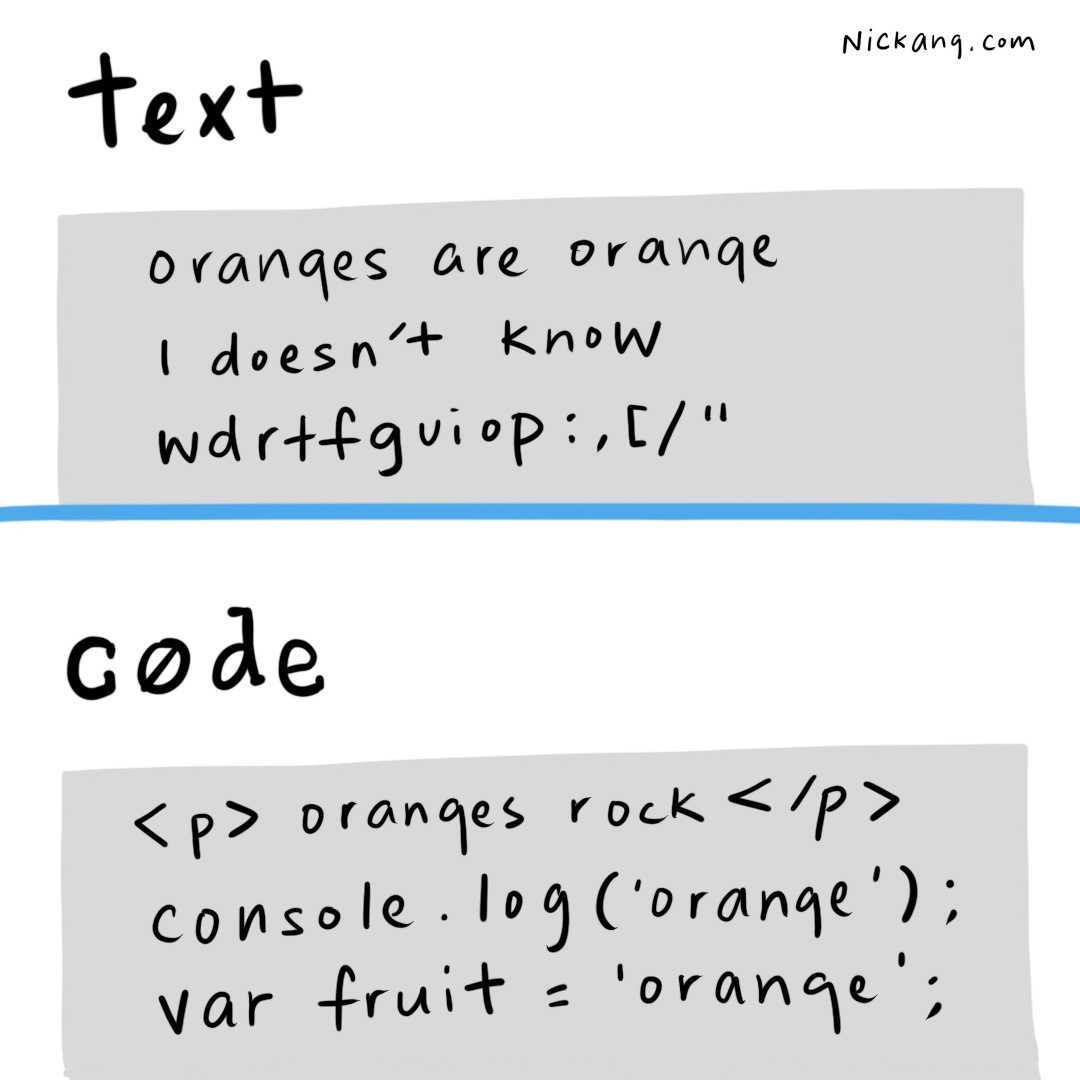 Nickang.com
text
oranges are orange
I doesn't know
wdrtfguiop:,[/"
cøde
<p> oranges rock </p>
console.log('orange');
var fruit = 'orange';